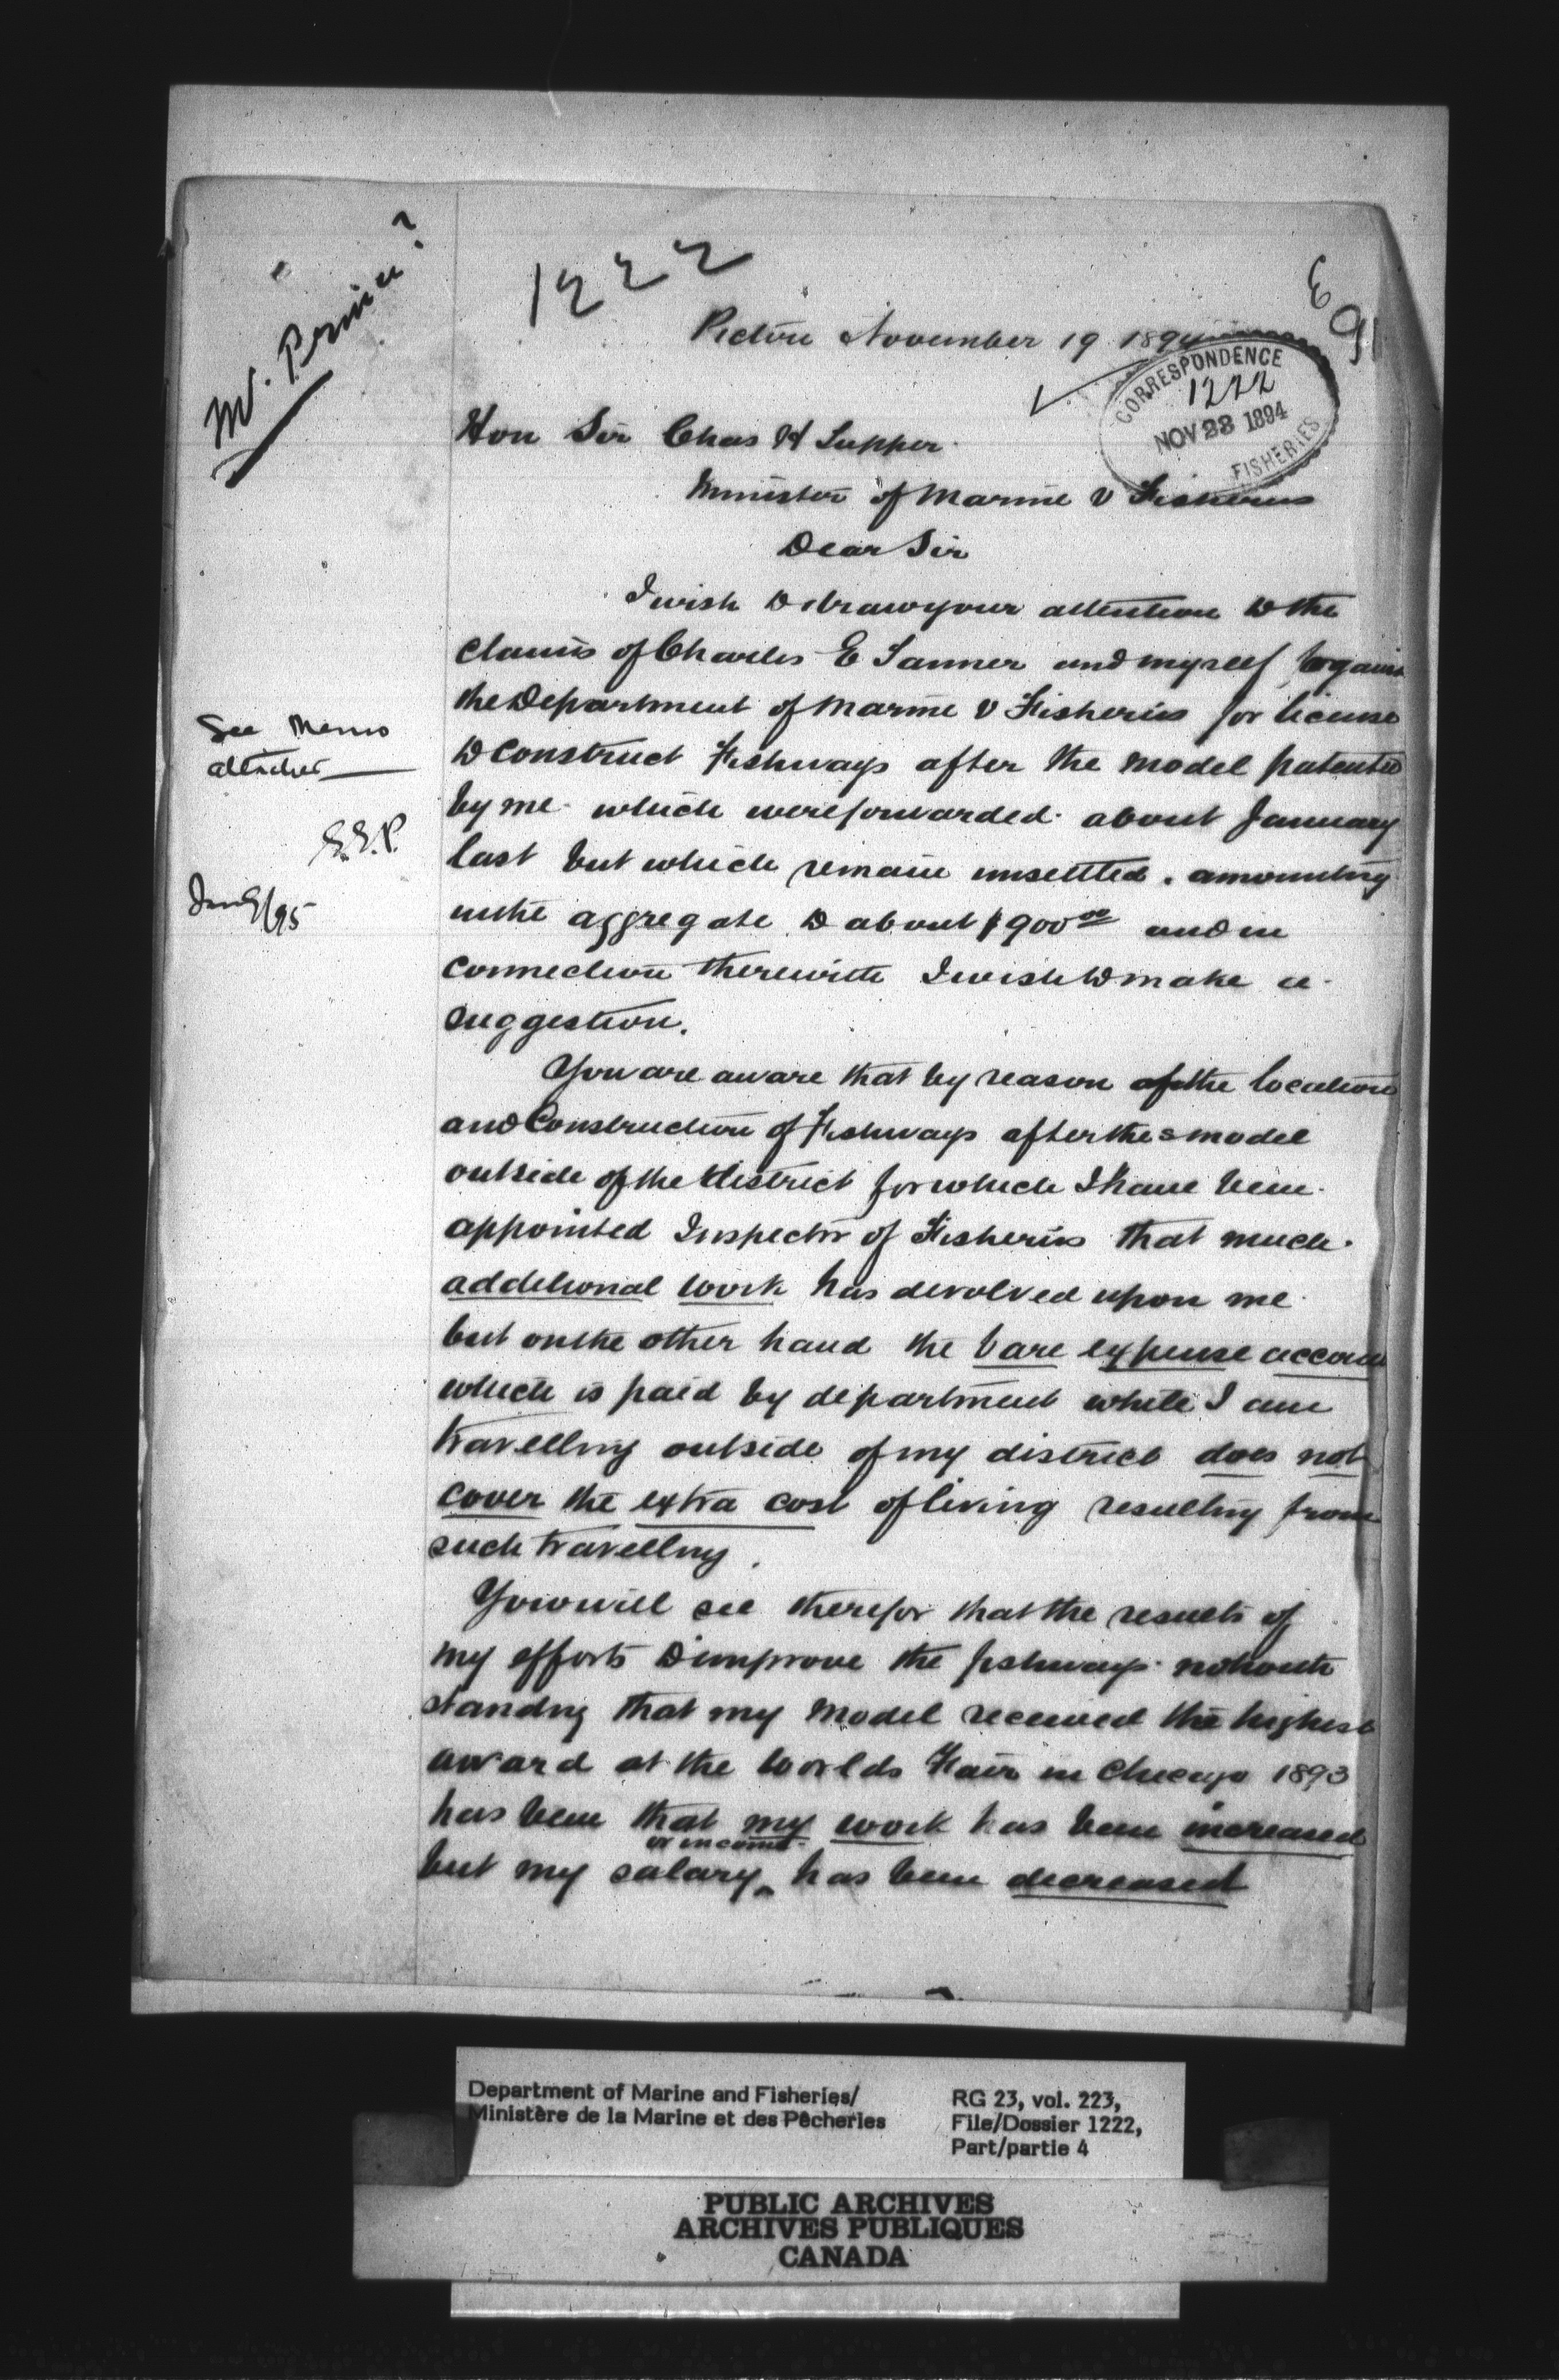 1222
Pictou November 19 1894
691
CORRESPONDENCE
1222
NOV 23 1894
FISHERIES
Mr. Prince?
Hon Sir Chas H Tupper
Minister of Marine & Fisheries
Dear Sir
I wish to draw your attention to the
claims of Charles E Tanner and myself against
the Department of Marine & Fisheries for license
to construct Fishways after the model patented
by me which were forwarded about January
last but which remain unsettled. amounting
in the aggregate to about $900 00 and in
connection therewith I wish to make a
suggestion.
See Memo
attached
E.E.P.
Jan 9/95
You are aware that by reason of the location
and Construction of Fishways after the model
outside of the district for which I have been
appointed Inspector of Fisheries that much
additional work has devolved upon me
but on the other hand the bare expense account
which is paid by department while I am
travelling outside of my district does not
cover the extra cost of living resulting from
such travelling.
You will see therefor that the results of
my efforts to improve the fishways notwith
standing that my model received the highest
award at the Worlds Fair in Chicago 1893
has been that my work has been increased
but my salary or income has been decreased
Department of Marine and Fisheries/
Ministère de la Marine et des Pêcheries
RG 23, vol. 223,
File/Dossier 1222,
Part/partie 4
PUBLIC ARCHIVES
ARCHIVES PUBLIQUES
CANADA